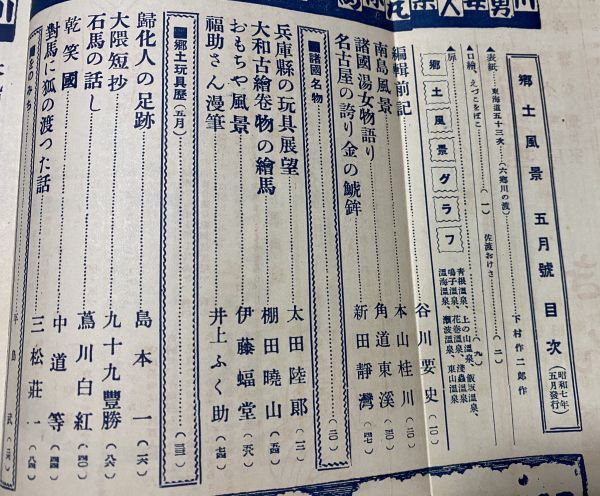 郷土風景 五月號 目次 (昭和七年五月發行)
表紙……東海道五十三次……(六郷川の渡)……下村作二郎作
口繪、えづこをばこ……(一) 佐渡おけさ……(二)
扉……(九)
郷土風景グラフ
青根温泉、上の山温泉、飯坂温泉、
鳴子温泉、花巻温泉、淺蟲温泉、
温海温泉、瀬波温泉、東山温泉
編輯前記……谷川要史(一〇)
南島風景……本山桂川(二〇)
諸國湯女物語り……角道東溪(四七)
名古屋の誇り金の鯱鉾……新田靜灣(七〇)
諸國名物……(二〇)
兵庫縣の玩具展望……太田陸郎(一二)
大和古繪卷物の繪馬……棚田曉山(五四)
おもちゃ風景……伊藤蝠堂(五八)
福助さん漫筆……井上ふく助(七四)
郷土玩具歷(五月)……(三三)
歸化人の足跡……島本一(二六)
大隈短抄……九十九豐勝(八六)
石馬の話し……蔦川白紅(八〇)
乾笑國……中道等(四四)
對馬に狐の渡つた話……三松莊一(八四)